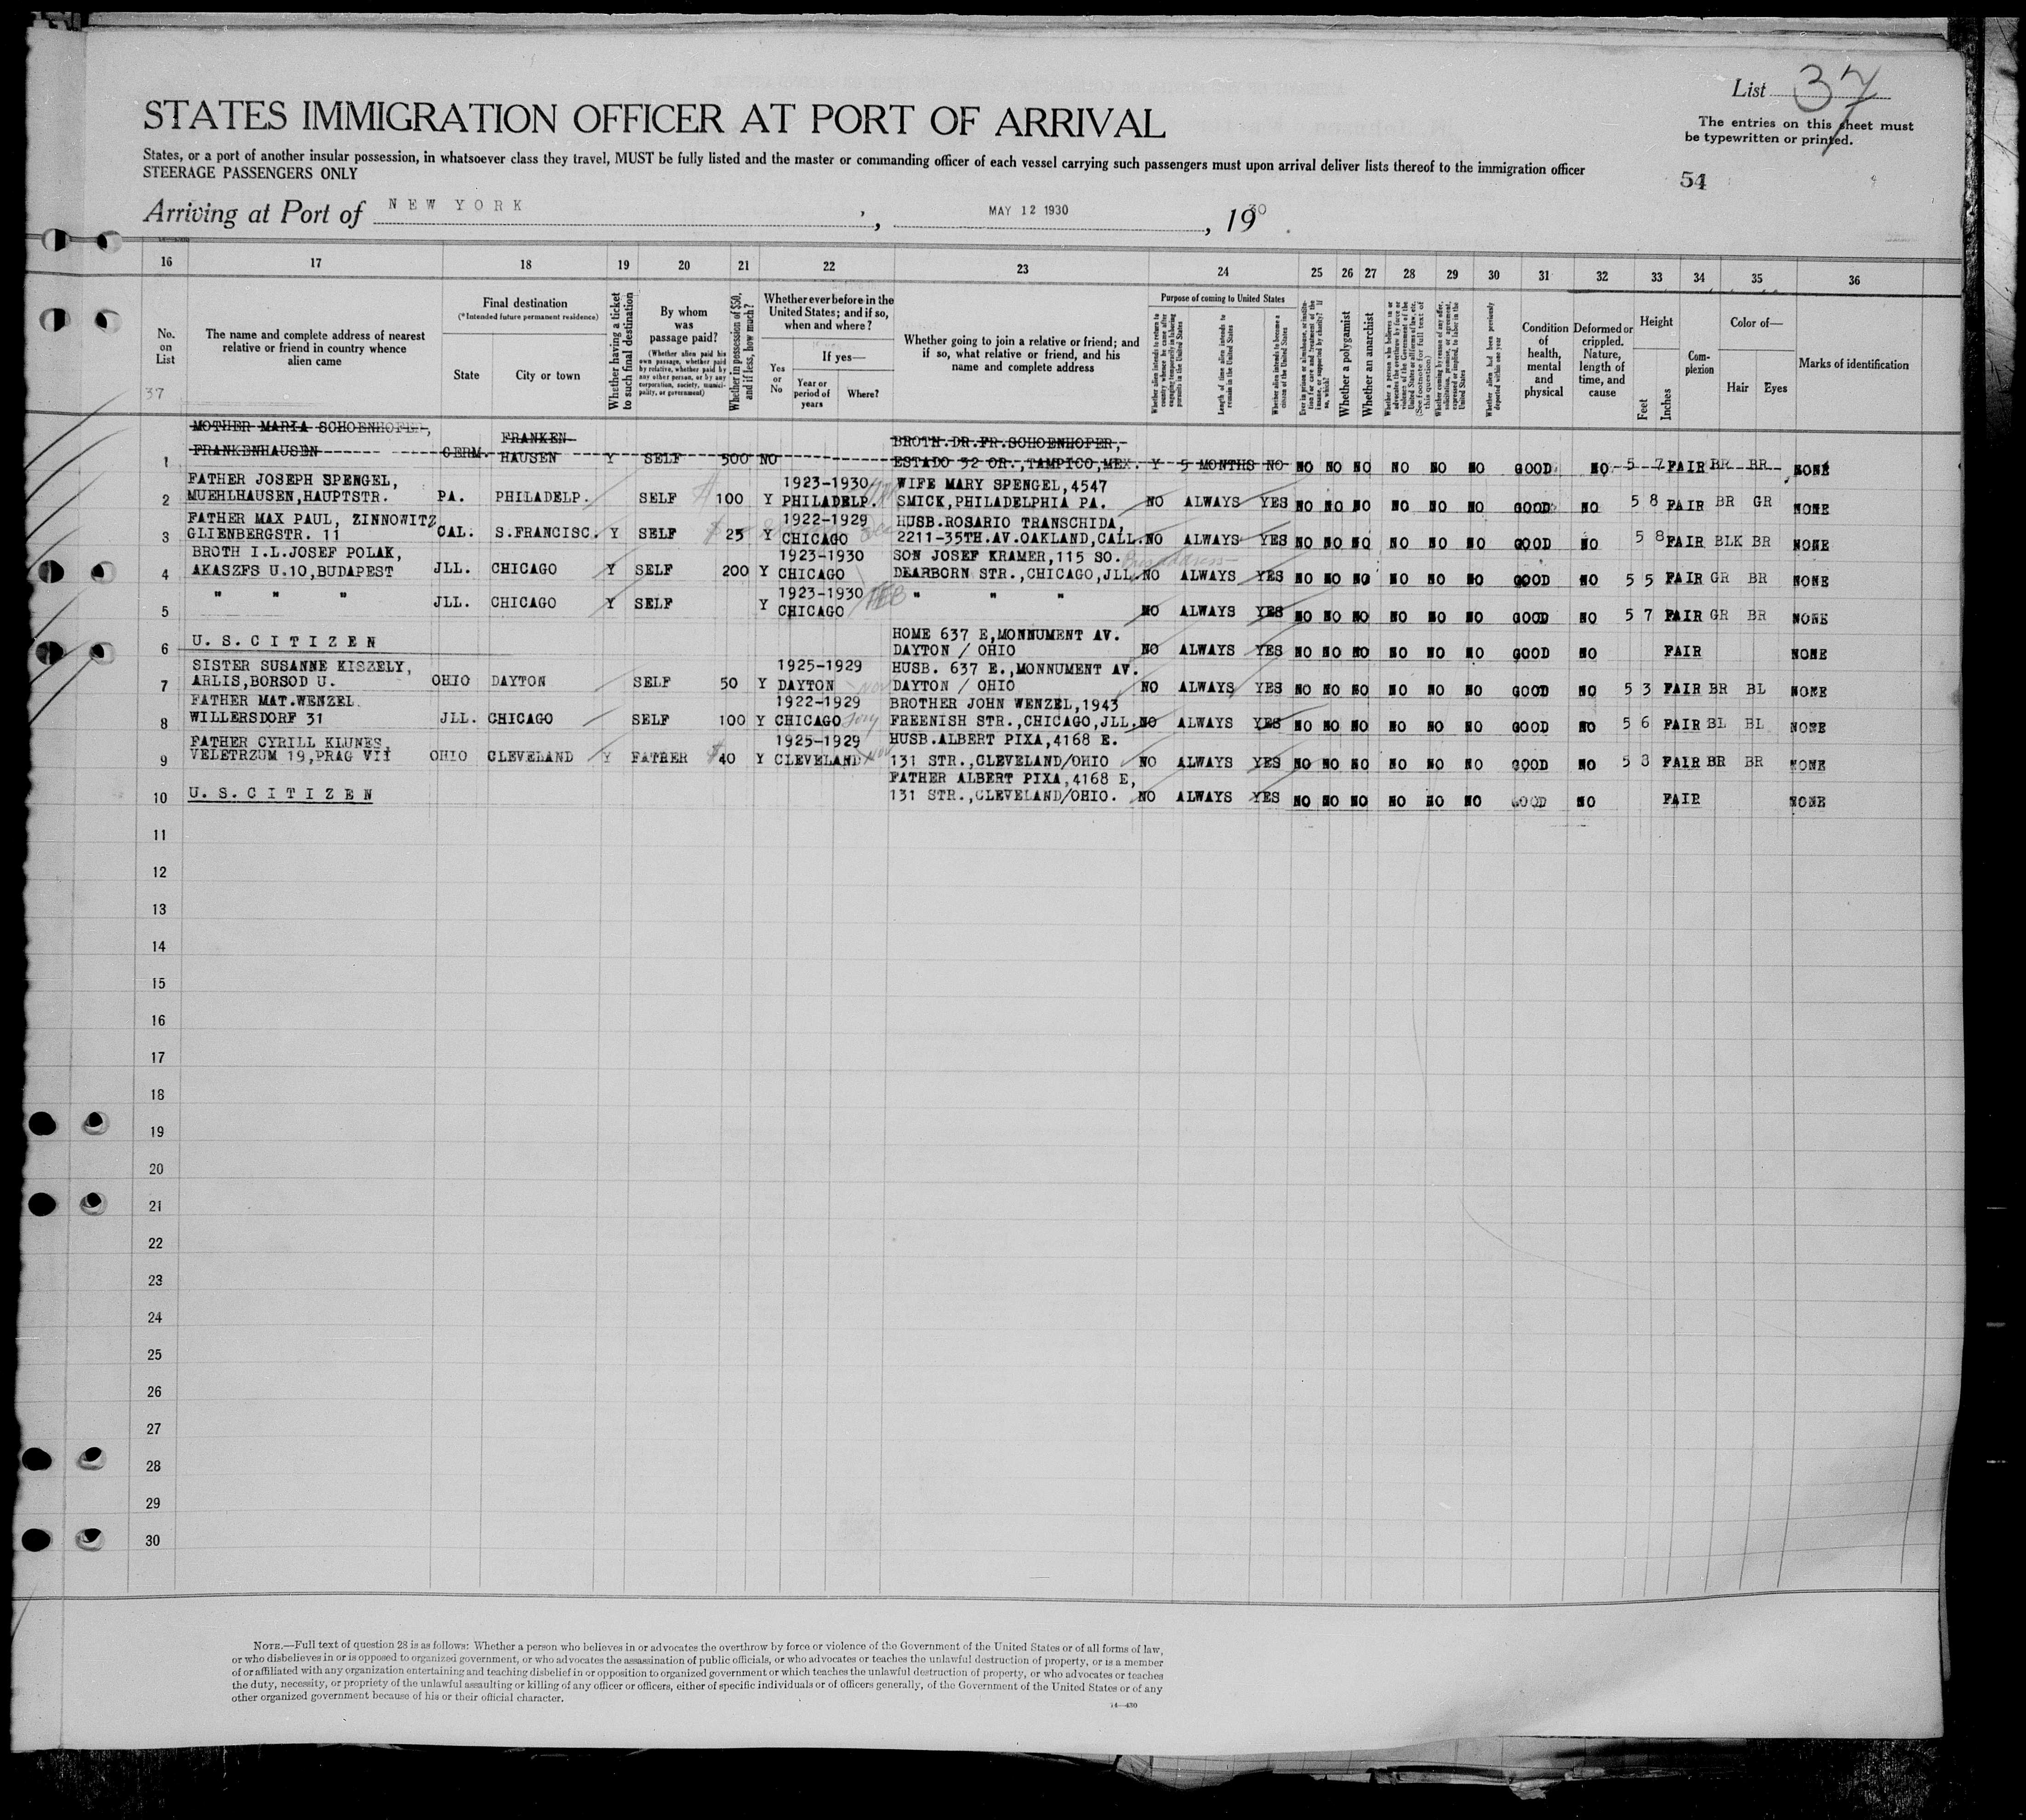 List 37
STATES IMMIGRATION OFFICER AT PORT OF ARRIVAL
The entries on this sheet must
be typewritten or printed.
States, or a port of another insular possession, in whatsoever class they travel, MUST be fully listed and the master or commanding officer of each vessel carrying such passengers must upon arrival deliver lists thereof to the immigration officer
STEERAGE PASSENGERS ONLY
54
Arriving at Port of NEW YORK, MAY 12 1930, 1930.
16 17 18 19 20 21 22 23 24 25 26 27 28 29 30 31 32 33 34 35 36
No. on List
37
The name and complete address of nearest relative or friend in country whence alien came
Final destination
(*Intended future permanent residence)
State
City or town
Whether having a ticket to such final destination
By whom was passage paid?
(Whether alien paid his own passage, whether paid by relative, whether paid by any other person, or by any corporation, society, municipality, or government)
Whether in possession of $50, and if less, how much?
Whether ever before in the United States; and if so, when and where?
Yes or No
If yes—
Year or period of years
Where?
Whether going to join a relative or friend; and if so, what relative or friend, and his name and complete address
Purpose of coming to United States
Whether alien intends to return to country whence he came after engaging temporarily in laboring pursuits in the United States
Length of time alien intends to remain in the United States
Whether alien intends to become a citizen of the United States
Ever in prison or almshouse, or institution for care and treatment of the insane, or supported by charity? If so, which?
Whether a polygamist
Whether an anarchist
Whether a person who believes in or advocates the overthrow by force or violence of the Government of the United States or all forms of law, etc. (See footnote for full text of this question)
Whether coming by reason of any offer, solicitation, promise, or agreement, expressed or implied, to labor in the United States
Whether alien had been previously deported within one year
Condition of health, mental and physical
Deformed or crippled. Nature, length of time, and cause
Height
Feet
Inches
Complexion
Color of—
Hair Eyes
Marks of identification
MOTHER MARIA SCHOENHOFER, FRANKEN- BROTH.DR.FR.SCHOENHOFER,
1 FRANKENHAUSEN GERM. HAUSEN Y SELF 500 NO ESTADO 52 OR.,TAMPICO,MEX. Y 5 MONTHS NO NO NO NO NO NO NO GOOD NO 5 7 FAIR BR BR NONE
FATHER JOSEPH SPENGEL, 1923-1930 WIFE MARY SPENGEL,4547
2 MUEHLHAUSEN,HAUPTSTR. PA. PHILADELP. SELF 100 Y PHILADELP. SMICK,PHILADELPHIA PA. NO ALWAYS YES NO NO NO NO NO NO GOOD NO 5 8 FAIR BR GR NONE
FATHER MAX PAUL, ZINNOWITZ 1922-1929 HUSB.ROSARIO TRANSCHIDA,
3 GLIENBERGSTR. 11 CAL. S.FRANCISC. Y SELF $ 25 Y CHICAGO 2211-35TH.AV.OAKLAND,CALL. NO ALWAYS YES NO NO NO NO NO NO GOOD NO 5 8 FAIR BLK BR NONE
BROTH I.L.JOSEF POLAK, 1923-1930 SON JOSEF KRAMER,115 SO.
4 AKASZFS U.10,BUDAPEST JLL. CHICAGO Y SELF 200 Y CHICAGO DEARBORN STR.,CHICAGO,JLL. NO ALWAYS YES NO NO NO NO NO NO GOOD NO 5 5 FAIR GR BR NONE
" " " 1923-1930 FEB " " "
5 JLL. CHICAGO Y SELF Y CHICAGO NO ALWAYS YES NO NO NO NO NO NO GOOD NO 5 7 FAIR GR BR NONE
U.S.CITIZEN HOME 637 E,MONNUMENT AV.
6 DAYTON / OHIO NO ALWAYS YES NO NO NO NO NO NO GOOD NO FAIR NONE
SISTER SUSANNE KISZELY, 1925-1929 HUSB. 637 E.,MONNUMENT AV.
7 ARLIS,BORSOD U. OHIO DAYTON SELF 50 Y DAYTON Nov DAYTON / OHIO NO ALWAYS YES NO NO NO NO NO NO GOOD NO 5 3 FAIR BR BL NONE
FATHER MAT.WENZEL 1922-1929 BROTHER JOHN WENZEL,1943
8 WILLERSDORF 31 JLL. CHICAGO SELF 100 Y CHICAGO FREENISH STR.,CHICAGO,JLL. NO ALWAYS YES NO NO NO NO NO NO GOOD NO 5 6 FAIR BL BL NONE
FATHER CYRILL KLUNES, 1925-1929 HUSB.ALBERT PIXA,4168 E.
9 VELETRZUM 19,PRAG VII OHIO CLEVELAND Y FATHER $40 Y CLEVELAND Nov 131 STR.,CLEVELAND/OHIO NO ALWAYS YES NO NO NO NO NO NO GOOD NO 5 3 FAIR BR BR NONE
FATHER ALBERT PIXA,4168 E,
10 U.S.CITIZEN 131 STR.,CLEVELAND/OHIO. NO ALWAYS YES NO NO NO NO NO NO GOOD NO FAIR NONE
11
12
13
14
15
16
17
18
19
20
21
22
23
24
25
26
27
28
29
30
NOTE.—Full text of question 28 is as follows: Whether a person who believes in or advocates the overthrow by force or violence of the Government of the United States or of all forms of law,
or who disbelieves in or is opposed to organized government, or who advocates the assassination of public officials, or who advocates or teaches the unlawful destruction of property, or is a member
of or affiliated with any organization entertaining and teaching disbelief in or opposition to organized government or which teaches the unlawful destruction of property, or who advocates or teaches
the duty, necessity, or propriety of the unlawful assaulting or killing of any officer or officers, either of specific individuals or of officers generally, of the Government of the United States or of any
other organized government because of his or their official character.
14—430